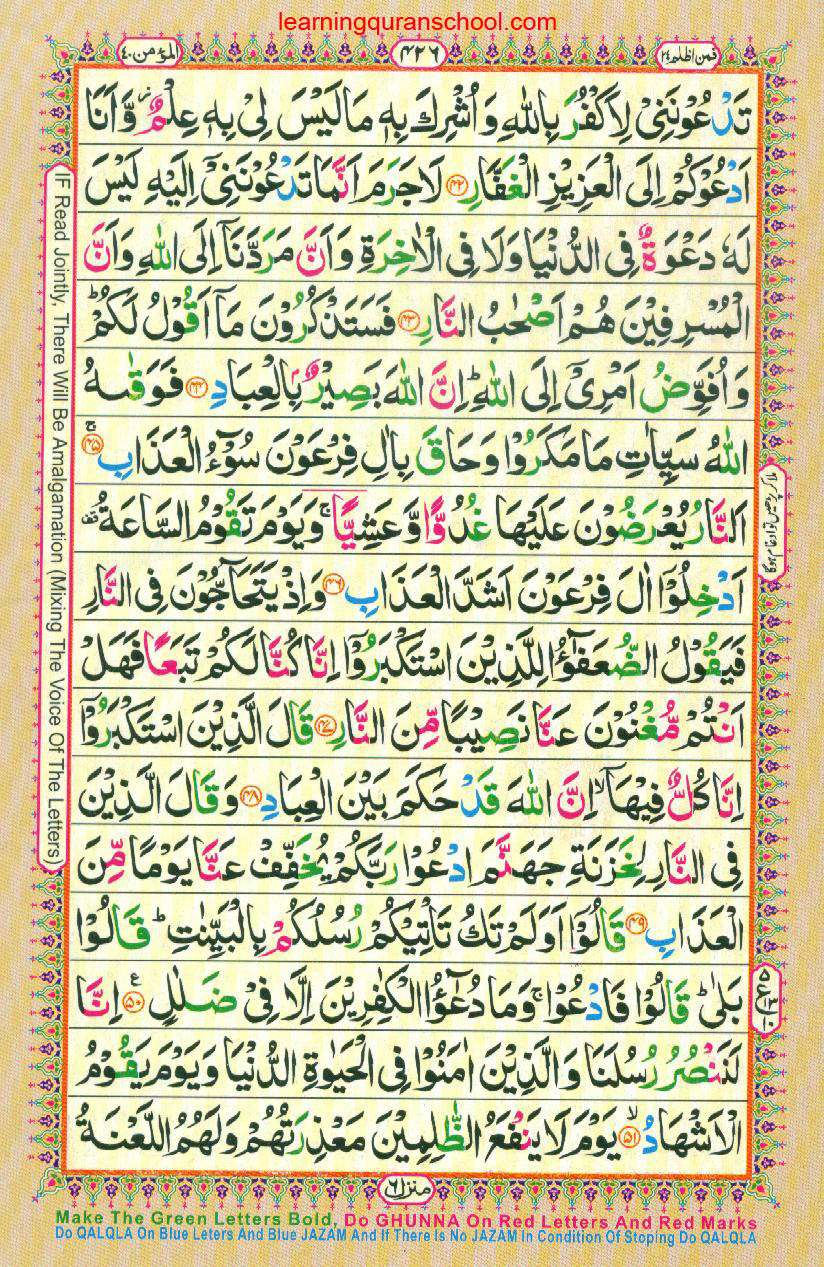 learningquranschool.com
المؤمن ٤٠
٤٢٦
فمن اظلم ٢٤
تَدْعُوْنَنِیْ لِاَكْفُرَ بِاللّٰهِ وَ اُشْرِكَ بِهٖ مَا لَیْسَ لِیْ بِهٖ عِلْمٌ٘ وَّ اَنَا
اَدْعُوْكُمْ اِلَى الْعَزِیْزِ الْغَفَّارِ ﴿۴۲﴾ لَا جَرَمَ اَنَّمَا تَدْعُوْنَنِیْۤ اِلَیْهِ لَیْسَ
لَهٗ دَعْوَةٌ فِی الدُّنْیَا وَ لَا فِی الْاٰخِرَةِ وَ اَنَّ مَرَدَّنَاۤ اِلَى اللّٰهِ وَ اَنَّ
الْمُسْرِفِیْنَ هُمْ اَصْحٰبُ النَّارِ ﴿۴۳﴾ فَسَتَذْكُرُوْنَ مَاۤ اَقُوْلُ لَكُمْؕ
وَ اُفَوِّضُ اَمْرِیْۤ اِلَى اللّٰهِؕ اِنَّ اللّٰهَ بَصِیْرٌۢ بِالْعِبَادِ ﴿۴۴﴾ فَوَقٰىهُ
اللّٰهُ سَیِّاٰتِ مَا مَكَرُوْا وَ حَاقَ بِاٰلِ فِرْعَوْنَ سُوْٓءُ الْعَذَابِ ﴿۴۵﴾ۚ
اَلنَّارُ یُعْرَضُوْنَ عَلَیْهَا غُدُوًّا وَّ عَشِیًّاۚ وَ یَوْمَ تَقُوْمُ السَّاعَةُ۫
اَدْخِلُوْۤا اٰلَ فِرْعَوْنَ اَشَدَّ الْعَذَابِ ﴿۴۶﴾ وَ اِذْ یَتَحَآجُّوْنَ فِی النَّارِ
فَیَقُوْلُ الضُّعَفٰٓؤُا لِلَّذِیْنَ اسْتَكْبَرُوْۤا اِنَّا كُنَّا لَكُمْ تَبَعًا فَهَلْ
اَنْتُمْ مُّغْنُوْنَ عَنَّا نَصِیْبًا مِّنَ النَّارِ ﴿۴۷﴾ قَالَ الَّذِیْنَ اسْتَكْبَرُوْۤا
اِنَّا كُلٌّ فِیْهَاۤۙ اِنَّ اللّٰهَ قَدْ حَكَمَ بَیْنَ الْعِبَادِ ﴿۴۸﴾ وَ قَالَ الَّذِیْنَ
فِی النَّارِ لِخَزَنَةِ جَهَنَّمَ ادْعُوْا رَبَّكُمْ یُخَفِّفْ عَنَّا یَوْمًا مِّنَ
الْعَذَابِ ﴿۴۹﴾ قَالُوْۤا اَوَ لَمْ تَكُ تَاْتِیْكُمْ رُسُلُكُمْ بِالْبَیِّنٰتِؕ قَالُوْا
بَلٰىؕ قَالُوْا فَادْعُوْاۚ وَ مَا دُعٰٓؤُا الْكٰفِرِیْنَ اِلَّا فِیْ ضَلٰلٍ ﴿۵۰﴾ع اِنَّا
لَنَنْصُرُ رُسُلَنَا وَ الَّذِیْنَ اٰمَنُوْا فِی الْحَیٰوةِ الدُّنْیَا وَ یَوْمَ یَقُوْمُ
الْاَشْهَادُ ﴿۵۱﴾ۙ یَوْمَ لَا یَنْفَعُ الظّٰلِمِیْنَ مَعْذِرَتُهُمْ وَ لَهُمُ اللَّعْنَةُ
منزل ٦
IF Read Jointly, There Will Be Amalgamation (Mixing The Voice Of The Letters)
Make The Green Letters Bold, Do GHUNNA On Red Letters And Red Marks
Do QALQLA On Blue Leters And Blue JAZAM And If There Is No JAZAM In Condition Of Stoping Do QALQLA